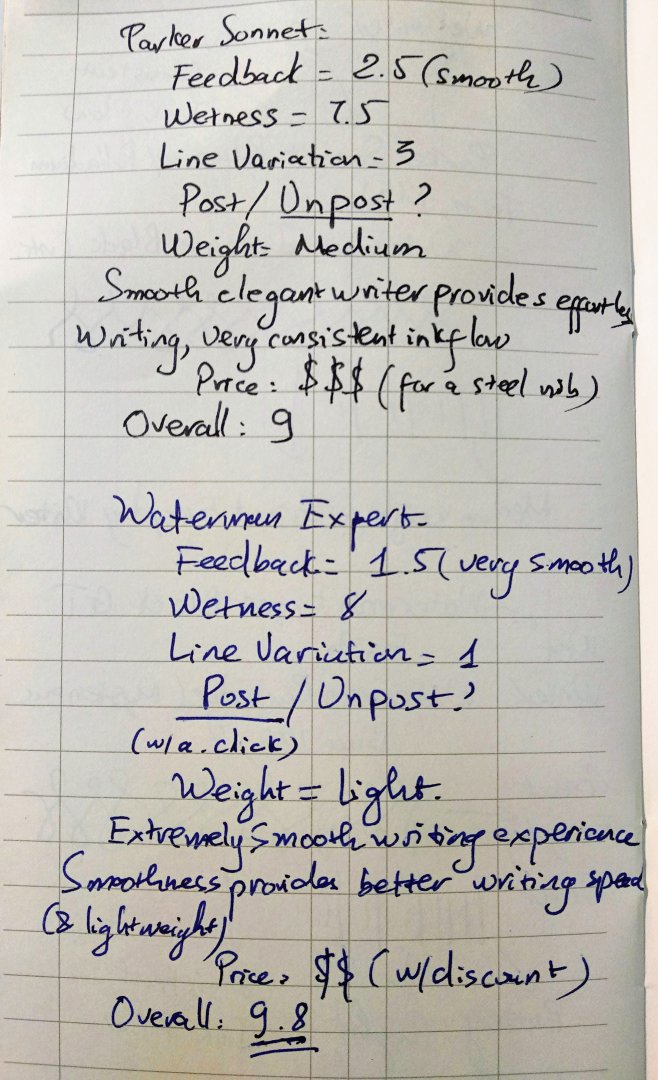 Parker Sonnet:
Feedback = 2.5 (smooth)
Wetness = 7.5
Line Variation - 3
Post / Unpost ?
Weight= Medium
Smooth elegant writer provides effortless
writing, very consistent inkflow
Price : $$$ (for a steel nib)
Overall : 9
Waterman Expert-
Feedback= 1.5 (very smooth)
Wetness= 8
Line Variation = 1
Post / Unpost?
(w/a. click)
Weight = Light.
Extremely Smooth writing experience
Smoothness provides better writing speed
(& lightweight)
Price: $$ (w/discount)
Overall: 9.8